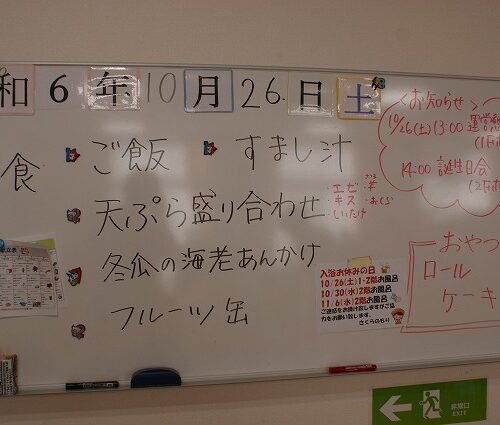 和6年10月26.日土
食
ご飯 すまし汁
天ぷら盛り合わせ
・エビ
・キス
・しいたけ
冬瓜の海老あんかけ
フルーツ缶
<お知らせ>
10/26(土)13:00 運営
14:00 誕生日会
おやつ
ロール
ケーキ
入浴お休みの日
10/26(土)1・2階お風呂
10/30(水)2階お風呂
11/6(水)2階お風呂
ご迷惑をお掛け致しますがご協
力をお願い致します。
さくらのもり
非常口
EXIT